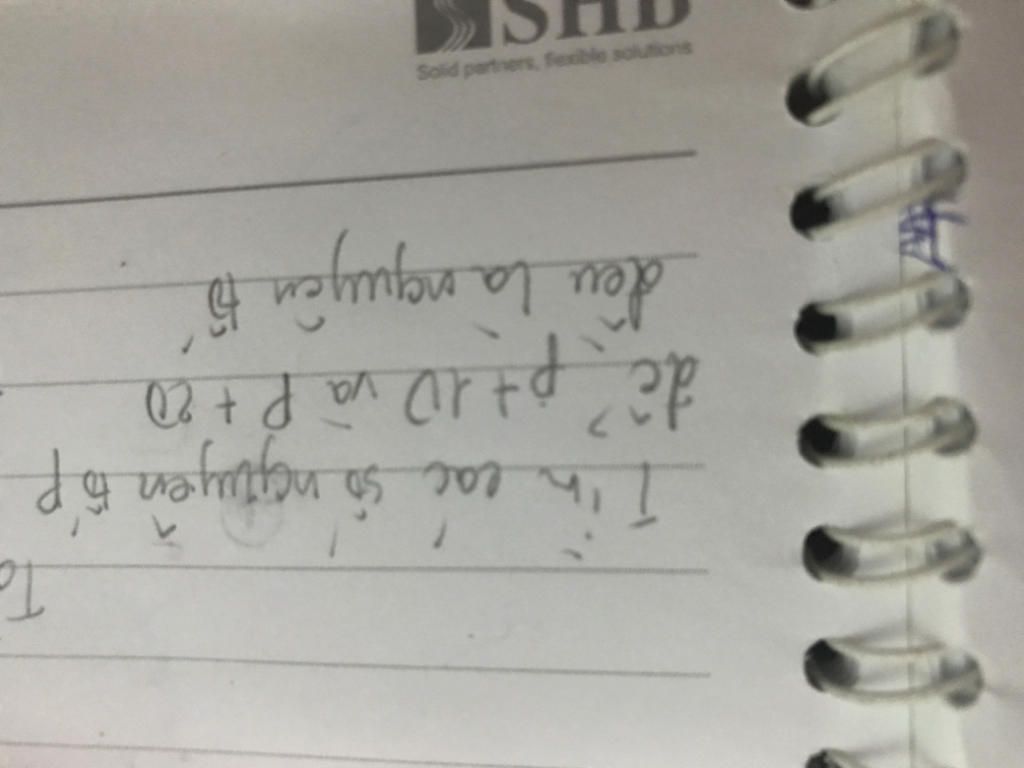 SHB
Solid partners, flexible solutions
Toá
Tìm các số nguyên tố p
để p + 10 và p + 20
đều là nguyên tố